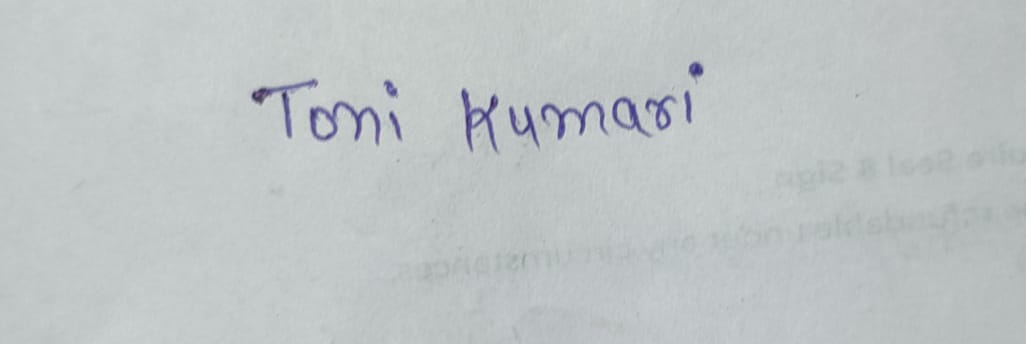 Toni Kumari